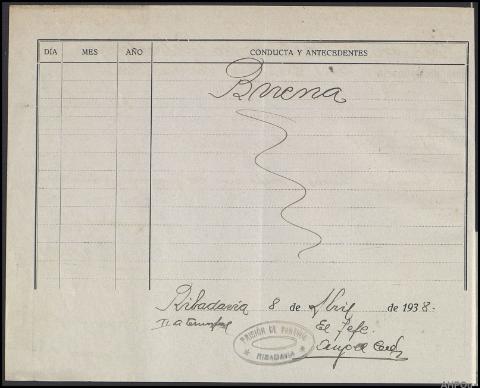 DÍA MES AÑO CONDUCTA Y ANTECEDENTES
Buena
Ribadavia 8 de Abril de 1938.
II a triunfal
El Jefe.
PRISIÓN DE PARTIDO
RIBADAVIA